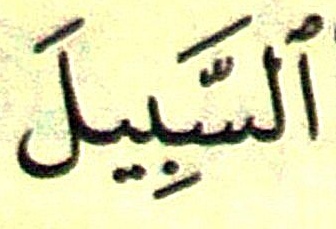 ٱلسَّبِيلَ